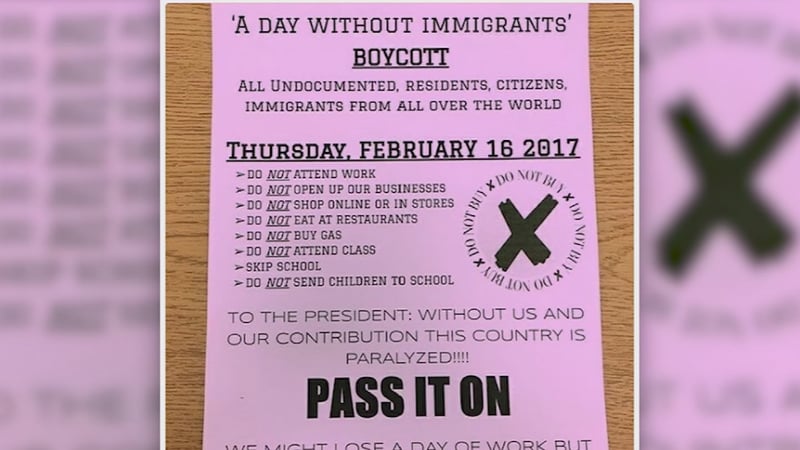 'A DAY WITHOUT IMMIGRANTS'
BOYCOTT
ALL UNDOCUMENTED, RESIDENTS, CITIZENS,
IMMIGRANTS FROM ALL OVER THE WORLD
THURSDAY, FEBRUARY 16 2017
➢DO NOT ATTEND WORK
➢DO NOT OPEN UP OUR BUSINESSES
➢DO NOT SHOP ONLINE OR IN STORES
➢DO NOT EAT AT RESTAURANTS
➢DO NOT BUY GAS
➢DO NOT ATTEND CLASS
➢SKIP SCHOOL
➢DO NOT SEND CHILDREN TO SCHOOL
DO NOT BUY X DO NOT BUY X DO NOT BUY X DO NOT BUY X
X
TO THE PRESIDENT: WITHOUT US AND
OUR CONTRIBUTION THIS COUNTRY IS
PARALYZED!!!!
PASS IT ON
WE MIGHT LOSE A DAY OF WORK BUT